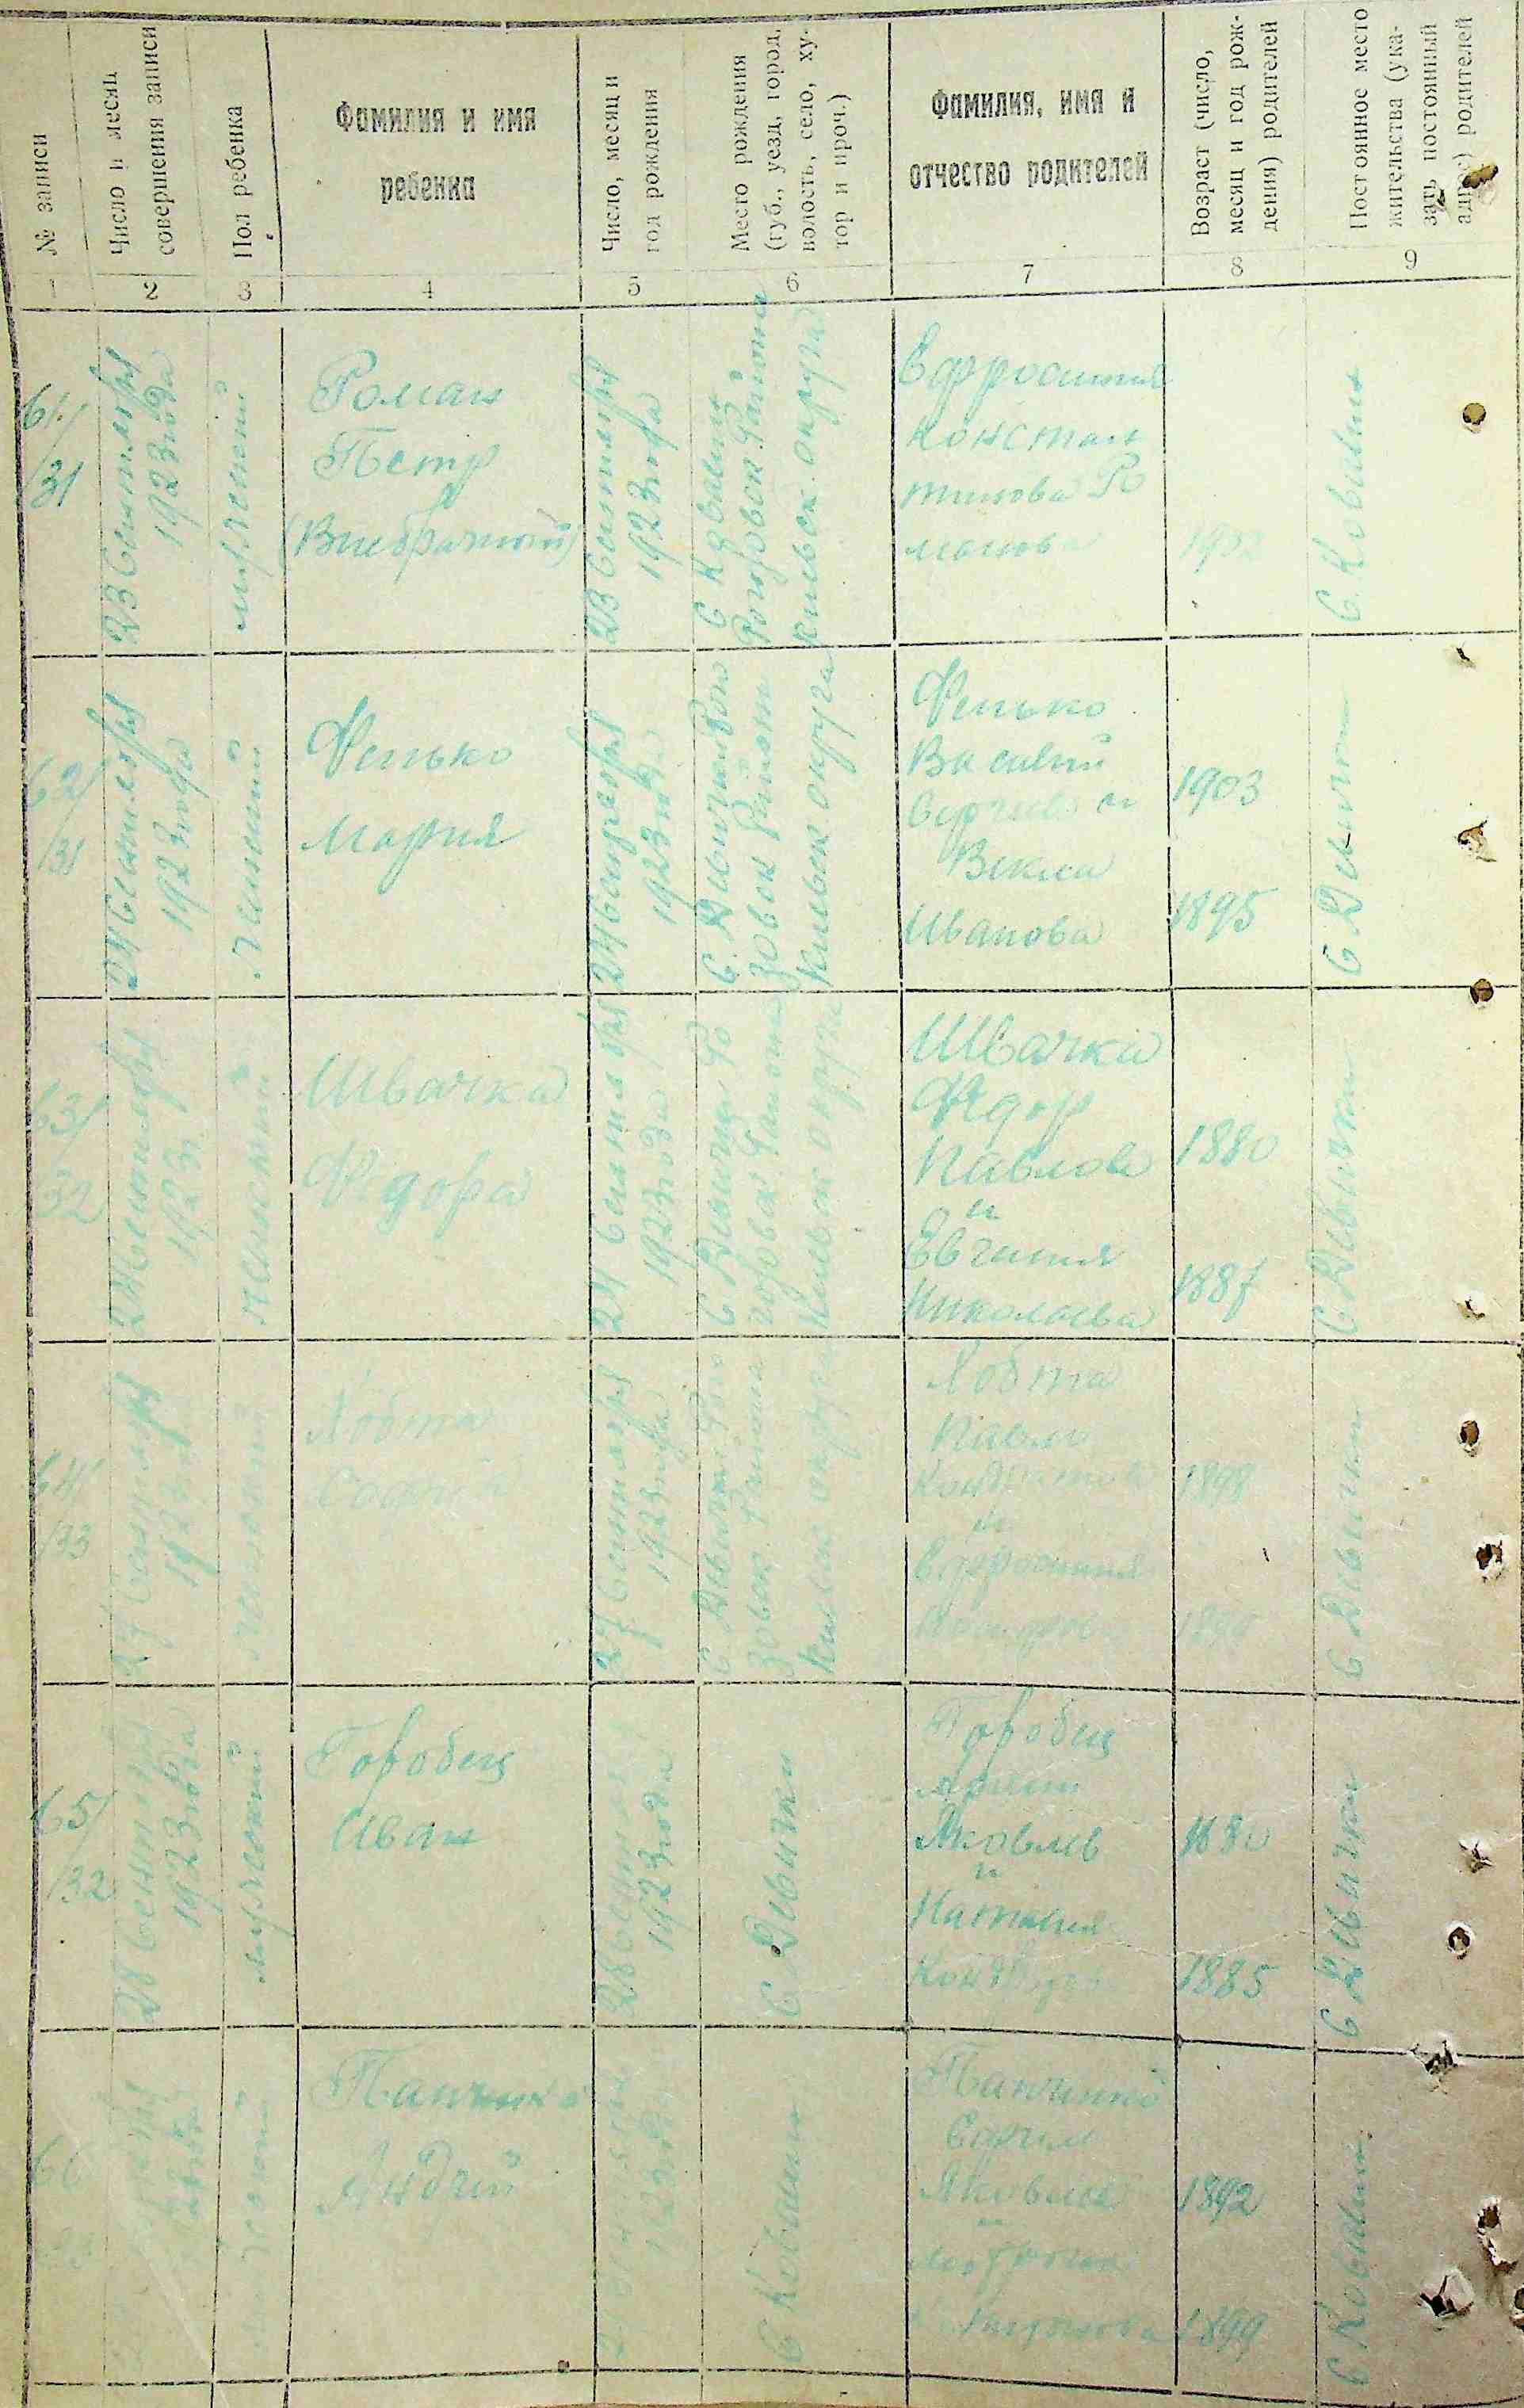 № записи
Число и месяц
совершения записи
Пол ребенка
Фамилия и имя
ребенка
Число, месяц и
год рождения
Место рождения
(губ., уезд, город,
волость, село, ху-
тор и проч.)
Фамилия, имя и
отчество родителей
Возраст (число,
месяц и год рож-
дения) родителей
Постоянное место
жительства (ука-
зать постоянный
адрес) родителей
1 2 3 4 5 6 7 8 9
61/
/31
23 Сентября
1923 года
мужеский
Роман
Петр
(Внебрачный)
23 Сентября
1923 года
С Ковалин
Рогозовск. Района
Киевск. округа
Ефросиния
Констан
тинова Ро
манова
1902
С. Ковалин
62/
/31
24 Сентября
1923 года
женский
Фенько
Мария
24 Сентября
1923 года
С. Дивички Рого
зовск Района
Киевск округа
Фенько
Василий
Сергиев и
Векла
Иванова
1903
1895
С Дивички
63/
32
24 Сентября
1923 г
женский
Швачка
Федора
24 Сентября
1923 года
С Дивички Ро
гозовск Района
Киевск округа
Швачка
Федор
Павлов
и
Евгения
Николаева
1880
1887
С Дивички
64/
/33
27 Сентября
1923
женский
Лобта
София
27 Сентября
1923 года
С Дивички Рого
зовск Района
Киевск округа
Лобта
Павел
Кондратов
и
Ефросиния
1898
С Дивички
65/
/32
28 Сентября
1923 года
мужеский
Горобец
Иван
28 Сентября
1923 года
С Дивички
Горобец
Яковлев
и
Наталия
1880
1885
С Дивички
66
Панченко
Андрей
1923 года
С Ковалин
Панченко
Ефрем
Яковлев
и
1892
1899
С Ковалин